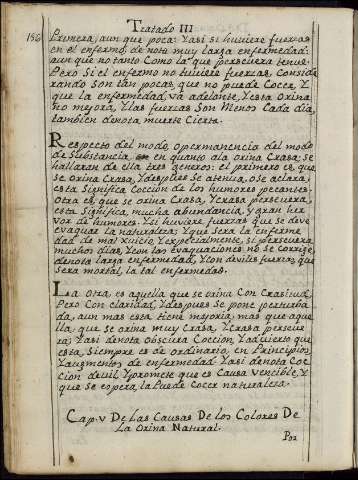 Tratado III
156
Primera, aun que poca: Y asi si huuiere fuerzas
en el enfermo, denota muy larga enfermedad:
aun que no tanto Como la que perseuera tenue.
Pero Si el enfermo no huuiere fuerzas, Conside
rando Son tan pocas, que no puede Cocer, Y
que la enfermedad, va adelante, Y esta Orina
no mejora, Y las fuerzas Son menos Cada dia,
tambien denota muerte Cierta.
Respecto del modo, o permanencia del modo
de Substancia, en quanto a la orina Crasa, se
hallaran de ella tres generos: el primero es, que
se orina Crasa, Y despues Se atenua, o Se aclara,
esta Significa Coccion de los humores pecantes.
Otra es, que se orina Crasa, Y Crasa perseuera,
esta Significa, mucha abundancia, y gran her
vor de humores. Y si huuiere fuerzas que Se deve
evaquar la naturaleza: Y que sera la enferme
dad de mal xuicio, Y especialmente, Si perseuera
muchos dias, Y con las evaquaciones no Se Corrige,
denota larga enfermedad, Y con deviles fuerzas, que
Sera mortal, la tal enfermedad.
La otra es aquella que se orina Con Crasitud,
Pero Con claridad, Y despues Se pone perturba
da, aun mas esta tiene mejoria, mas que aque
lla, que Se orina muy Crasa, Y Crasa perseue
ra; Y asi denota Obscura Coccion, Y advierto que
esta, Siempre es de ordinario, en Principios,
Y augmentos de enfermedad Y asi denota Coc
cion devil, Y promete que es Causa Vencible, Y
que Se espera, la Puede Cocer naturaleza.
Cap. V De Las Causas De los Colores De
La Orina Natural.
Por